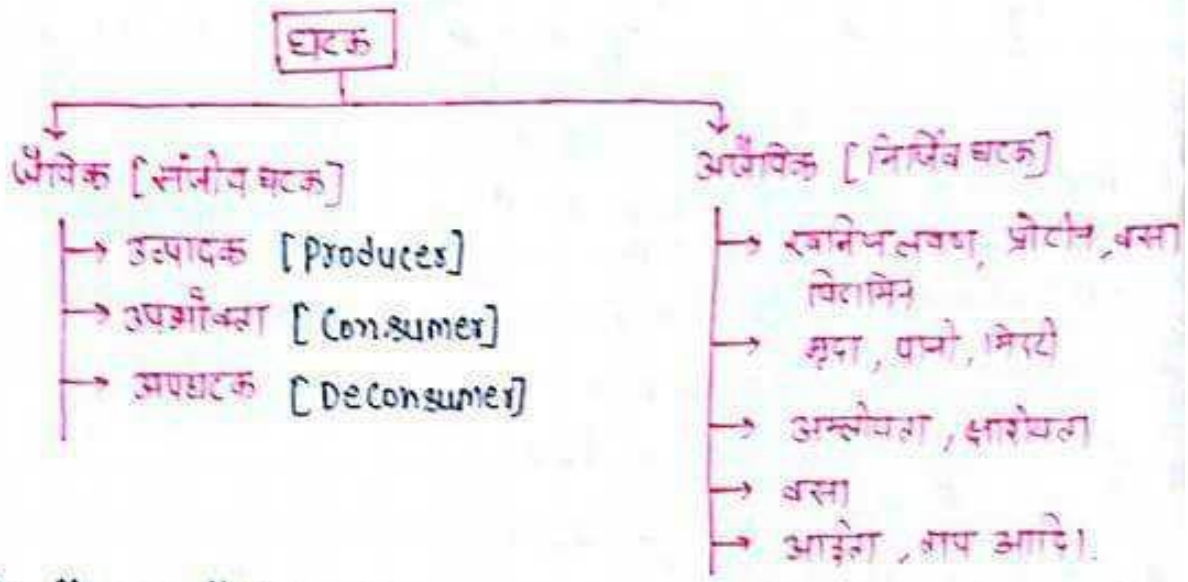 घटक
जैविक [संजीव घटक]
→ उत्पादक [Producer]
→ उपभोक्ता [Consumer]
→ अपघटक [Deconsumer]
अजैविक [निर्जिव घटक]
→ खनिज लवण, प्रोटीन, वसा
विटामिन
→ मृदा, पानी, मिट्टी
→ अम्लीयता, क्षारीयता
→ वसा
→ आर्द्रता, ताप आदि।